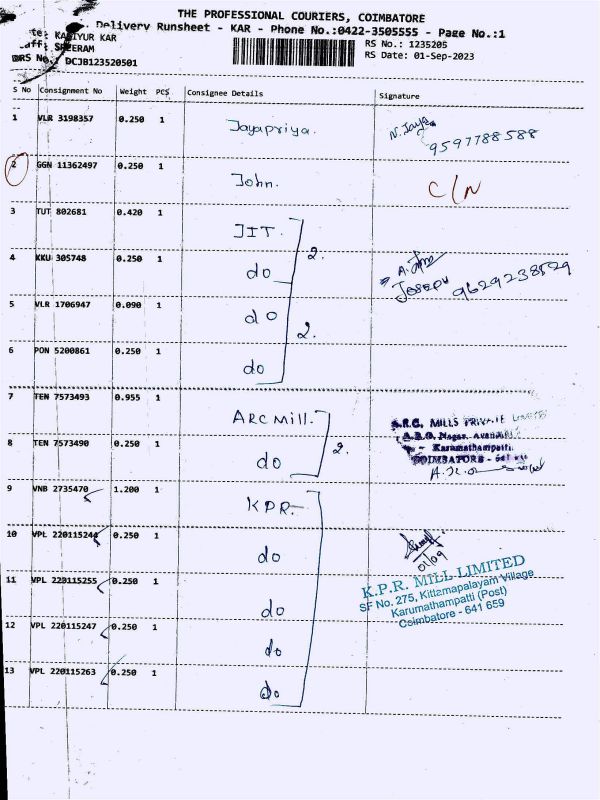 THE PROFESSIONAL COURIERS, COIMBATORE
Delivery Runsheet - KAR - Phone No.:0422-3505555 - Page No.:1
te: KANIYUR KAR
RS No.: 1235205
aff: SREERAM
RS Date: 01-Sep-2023
DRS No: DCJB123520501
S No Consignment No Weight PCS Consignee Details Signature
1 VLR 3198357 0.250 1 Jayapriya. N. Jaya
9597788588
2 GGN 11362497 0.250 1 John. C/N
3 TUT 802681 0.420 1 JIT.
2.
4 KKU 305748 0.250 1 do A.
JOSEPH 9629238529
5 VLR 1706947 0.090 1 do
2.
6 PON 5200861 0.250 1 do
7 TEN 7573493 0.955 1 ARC Mill. A.R.C. MILLS PRIVATE LIMITED
Karumathampatti
8 TEN 7573490 0.250 1 do 2. COIMBATORE - 641
9 VNB 2735470 1.200 1 KPR
10 VPL 220115244 0.250 1 do 01/09
K.P.R. MILL LIMITED
11 VPL 220115255 0.250 1 do SF No. 275, Kittampalayam Village
Karumathampatti (Post)
12 VPL 220115247 0.250 1 do Coimbatore - 641 659
13 VPL 220115263 0.250 1 do